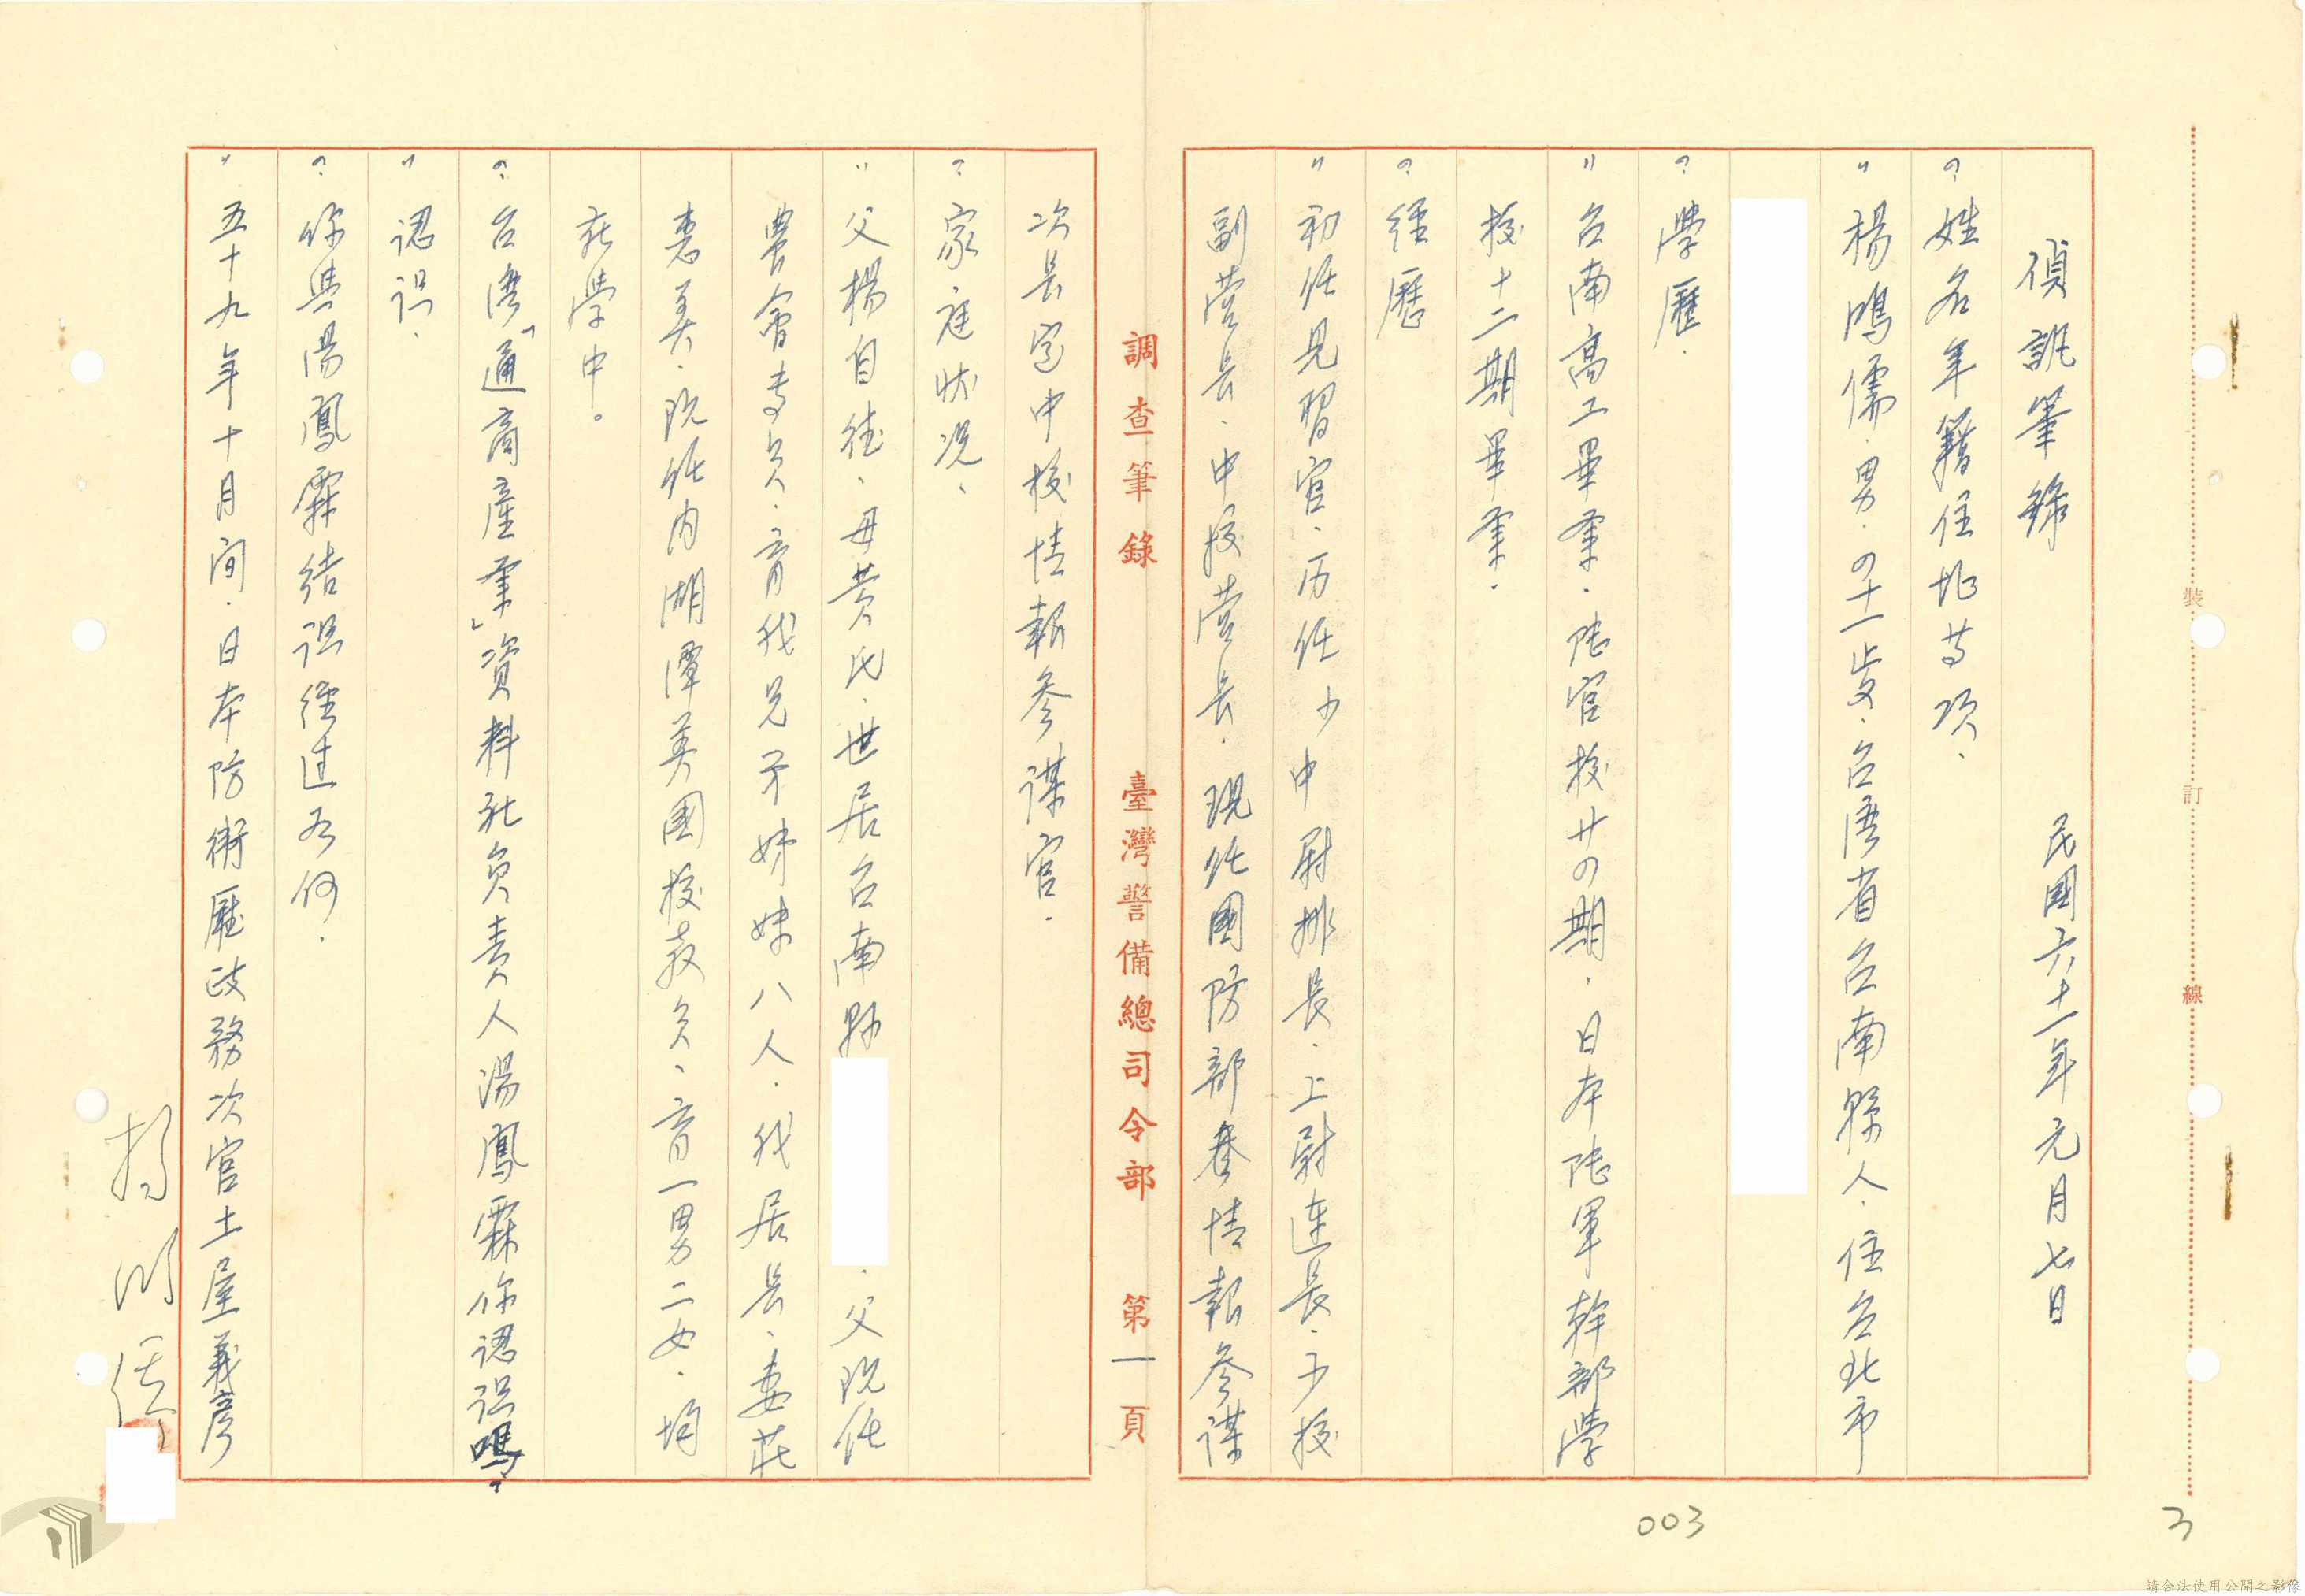 偵訊筆錄　民國六十一年元月七日
？姓名年籍住址等項．
〃楊鳴儒．男．四十一歲．台灣省台南縣人．住台北市
？學歷．
〃台南高工畢業．陸官校廿四期．日本陸軍幹部學
校十二期畢業．
？經歷
〃初任見習官．历任少中尉排長．上尉連長．少校
副營長．中校營長．現任國防部 情報參謀
調查筆錄　臺灣警備總司令部　第一頁
次長室中校情報參謀官．
？家庭狀況、
〃父楊自 、母黃氏．世居台南縣 ．父現任
農會專員．育我兄弟姊妹八人．我居長、妻莊
惠美．現任內湖潭美國校教員、育一男二女．均
在學中。
？台灣「通商產業」資料社負責人湯鳳霖你認识嗎？
〃認识．
？你與湯鳳霖结识經过为何．
〃五十九年十月间．日本防衛廳政務次官土屋義彥
楊鳴儒
裝 訂 線
003
3
請合法使用公開之影像